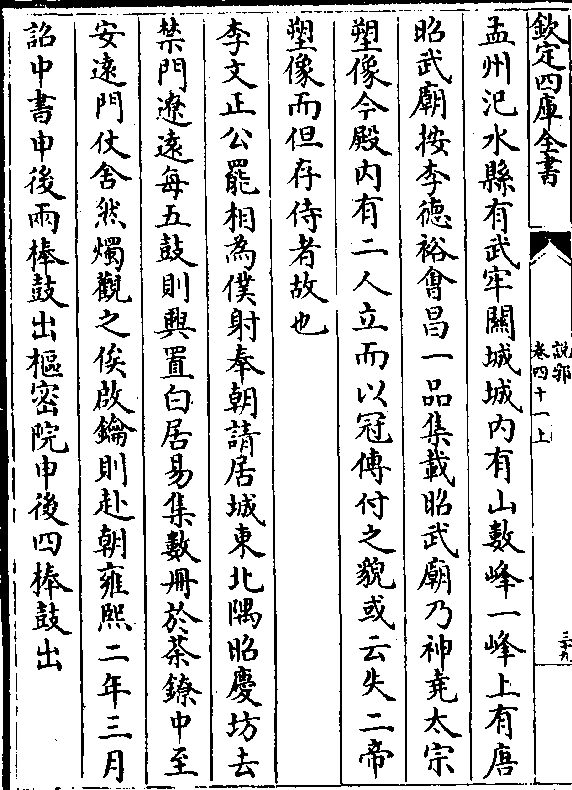 欽定四庫全書
說郛
卷四十一上
三十九
孟州汜水縣有武牢關城城内有山數峰一峰上有唐
昭武廟按李德裕㑹昌一品集載昭武廟乃神堯太宗
塑像今殿内有二人立而以冠傳付之貌或云失二帝
塑像而但存侍者故也
李文正公罷相為僕射奉朝請居城東北隅昭慶坊去
禁門遼遠每五鼓則興置白居易集數冊於茶鐐中至
安遠門仗舍然燭觀之俟啟鑰則赴朝雍熙二年三月
詔中書申後兩棒鼓出樞密院申後四棒鼓出